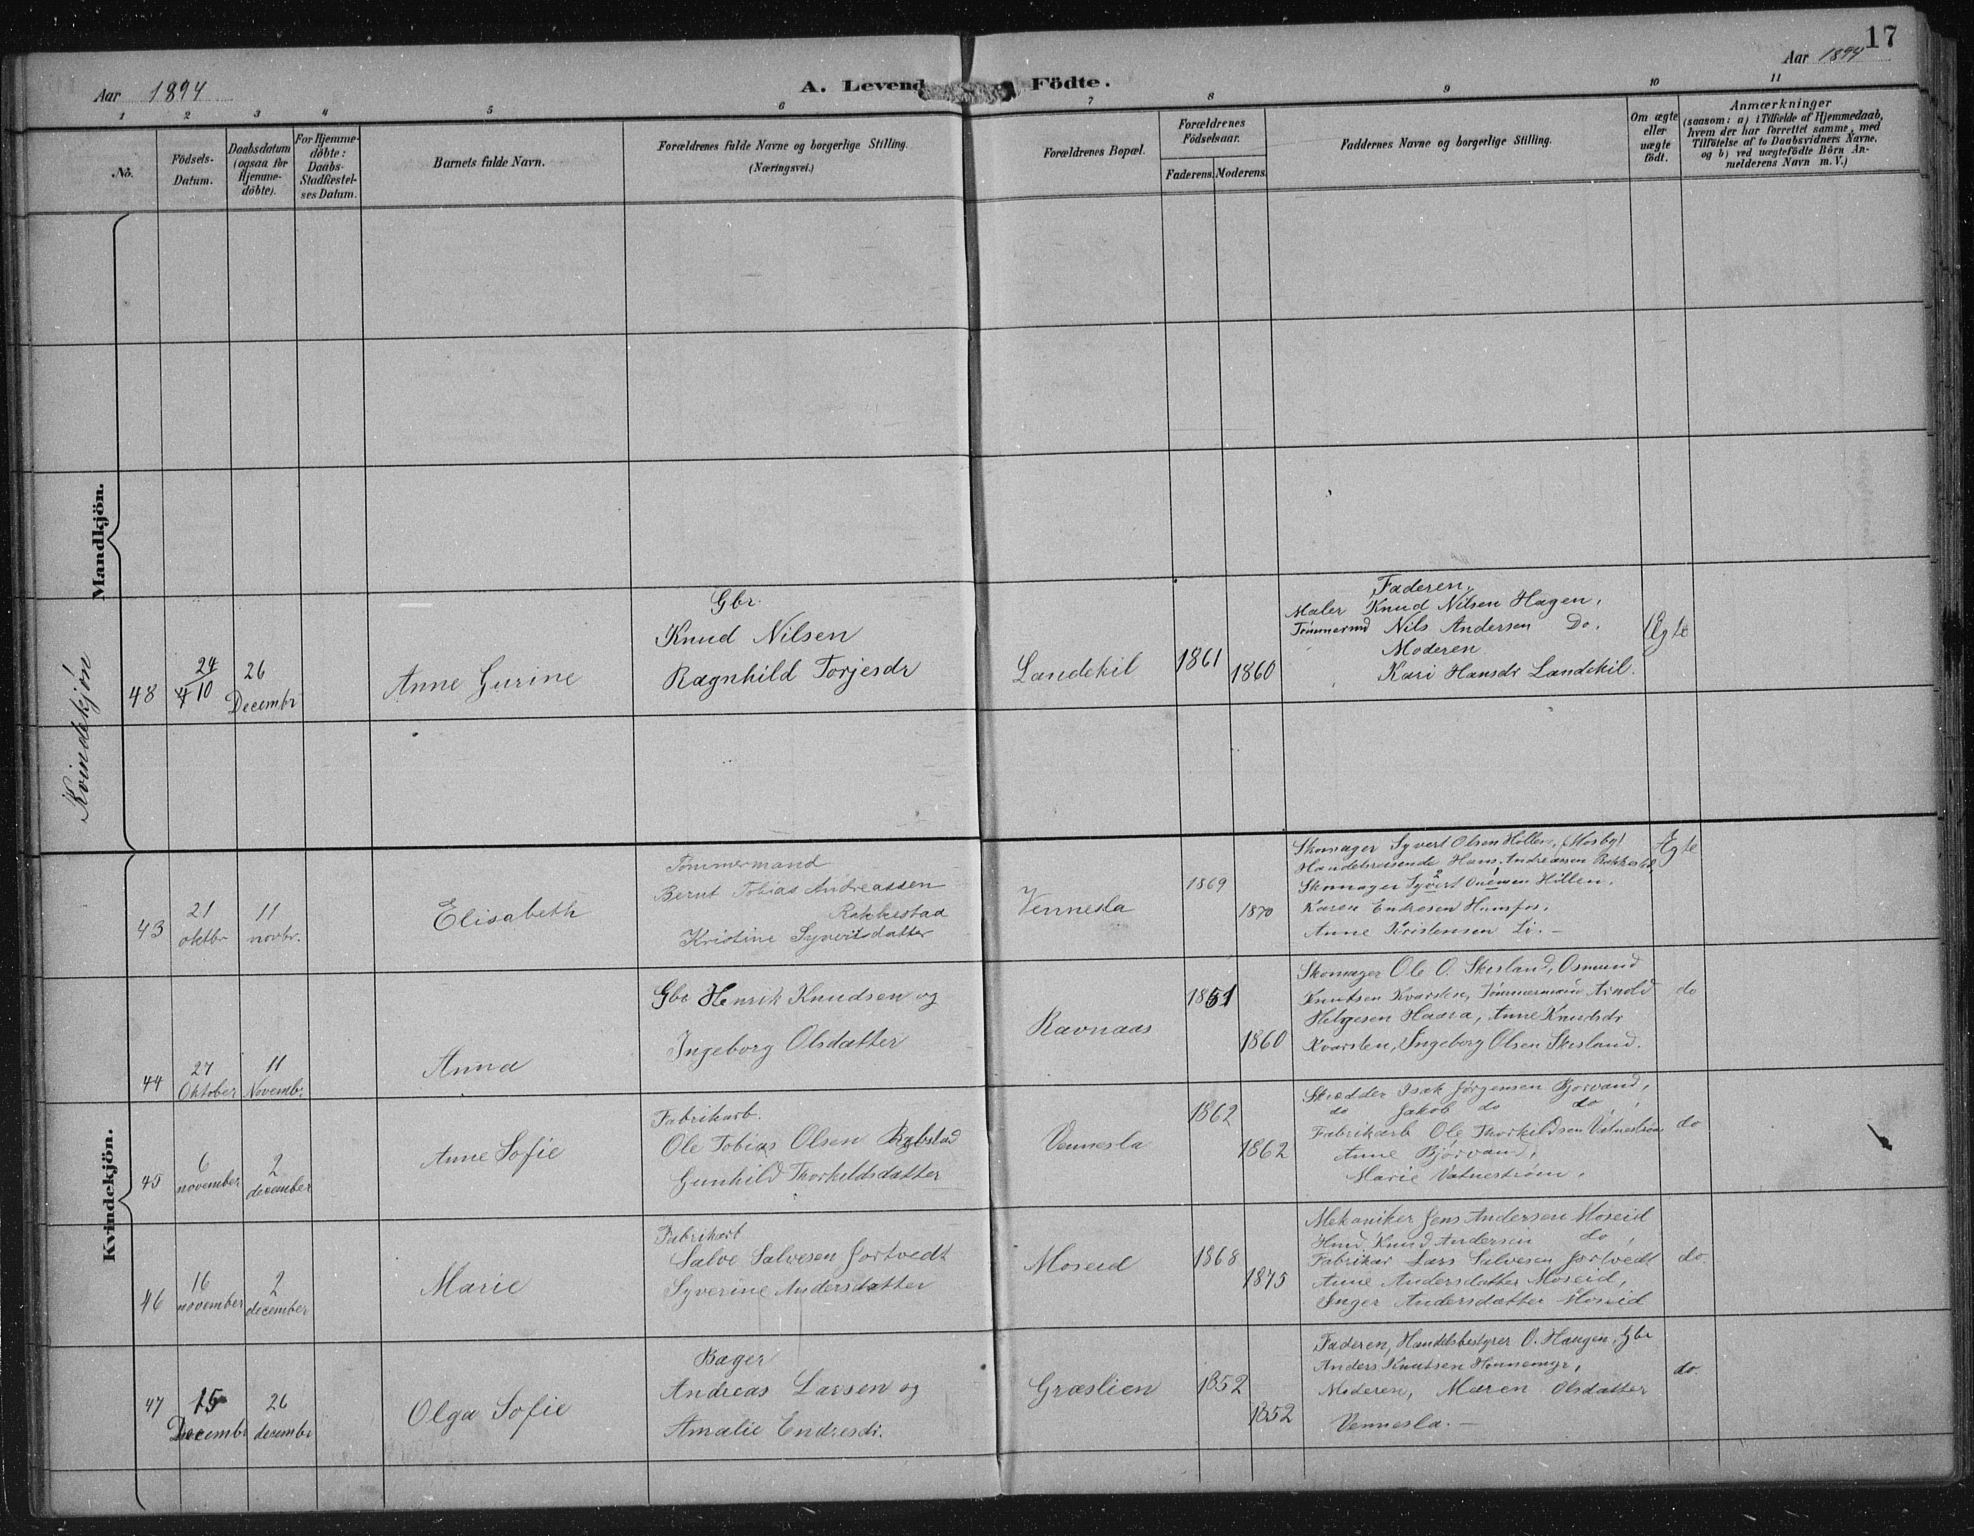 17
Aar 1894
A. Levende Födte.
Aar 1894
1 2 3 4 5 6 7 8 9 10 11
No.
Födsels-
Datum.
Daabsdatum
(ogsaa for
Hjemme-
döbte).
For Hjemme-
döbte:
Daabs-
Stadfestel-
ses Datum.
Barnets fulde Navn.
Forældrenes fulde Navne og borgerlige Stilling.
(Næringsvei.)
Forældrenes Bopæl.
Forældrenes
Födselsaar.
Faderens. Moderens.
Faddernes Navne og borgerlige Stilling.
Om ægte
eller
uægte
födt.
Anmærkninger
(saasom: a) i Tilfælde af Hjemmedaab,
hvem der har forrettet samme, med
Tilföielse af to Daabsvidners Navne,
og b) ved uægtefödte Börn An-
melderens Navn m. V.)
Mandkjön.
Kvindekjön
48
24
10
26
Decembr
Anne Gurine
Gbr.
Knud Nilsen
Ragnhild Torjesdr
Landekil
1861
1860
Faderen,
Maler Knud Nilsen Hagen,
Tømmermd Nils Andersen Do.
Moderen
Kari Hansdr Landekil.
Ægte
Kvindekjön.
43
21
oktbr
11
novbr.
Elisabeth
Tømmermand
Bernt Tobias Andreassen
Rakkestad
Kristine Syvertsdatter
Vennesla
1869
1870
Skomager Syvert Olsen Hollen, (Mosby)
Handelsreisende Hans Andreasen Rakkestad
Skomager Syvert Hillen.
Karen Endresen Hunsfos.
Anne Kristensen Li. —
Ægte
44
27
Oktober
11
Novembr.
Anna
Gbr Henrik Knudsen og
Ingeborg Olsdatter
Ravnaas
1851
1860
Skomager Ole O. Skisland, Osmund
Knutsen Kvarsten, Tømmermand Arnold
Helgesen Haara, Anne Knudsdr
Kvarsten, Ingeborg Olsen Skisland.
do
45
6
november
2
december
Anne Sofie
Fabrikarb.
Ole Tobias Olsen Rabstad
Gunhild Thorkildsdatter
Vennesla
1862
1862
Skrædder Isak Jørgensen Bjorvand,
do Jakob do do,
Fabrikarb Ole Thorkildsen Vatnestrøm
Anne Bjørvand,
Marie Vatnestrøm,
do
46
16
november
2
december
Marie
Fabrikarb
Salve Salvesen Jortvedt
Syverine Andersdatter
Moseid
1868
1875
Mekaniker Jens Andersen Moseid
Knud Andersen do,
Fabrikar Lars Salvesen Jortvedt
Anne Andersdatter Moseid,
Inger Andersdatter Moseid
do.
47
15
Decembr
26
decembr
Olga Sofie
Bager
Andreas Larsen og
Amalie Endresdr.
Græslien
1852
1852
Faderen, Handelsbestyrer O. Haugen, Gbr
Anders Knutsen Honnemyr,
Moderen, Maren Olsdatter
Vennesla. —
do.